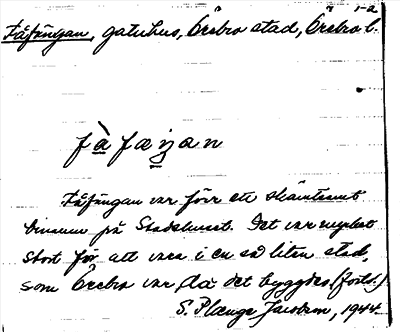 1-2
Fåfängan, gatuhus, Örebro stad, Örebro l.
fàfaŋan
Fåfängan var förr ett skämtsamt
binamn på Stadshuset. Det var mycket
stort för att vara i en så liten stad,
som Örebro var, då det byggdes. (forts.)
S. Plænge Jacobson, 1944